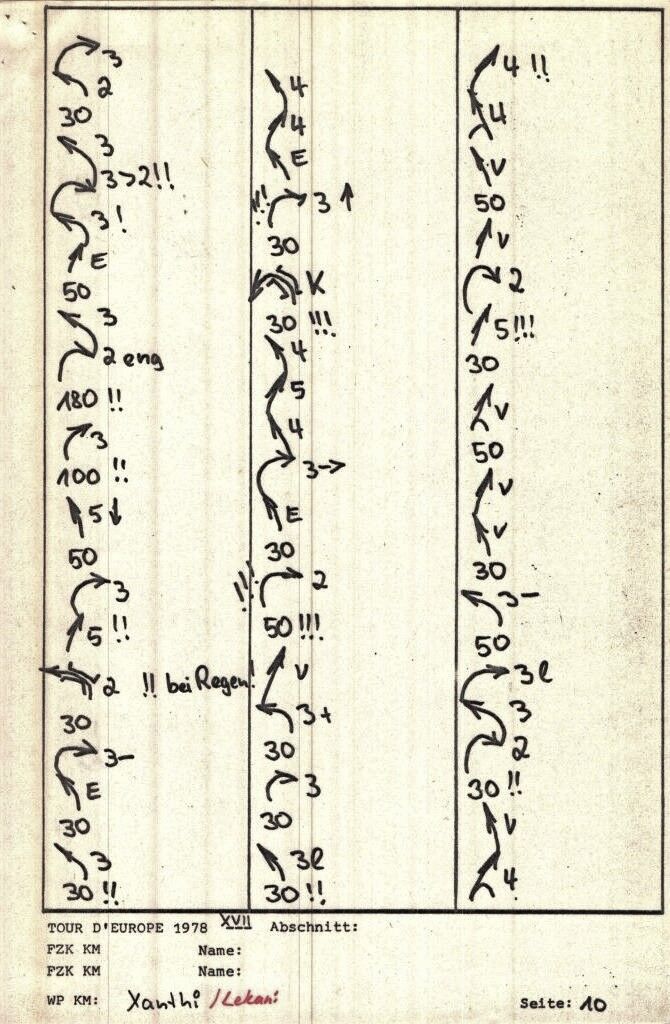 3
2
30
3
3>2!!
3!
E
50
3
2 eng
180 !!
3
100 !!
5↓
50
3
5 !!
2 !! bei Regen!
30
3-
E
30
3
30 !!
4
4
E
!!! 3 ↑
30
K
30 !!!
4
5
4
3→
E
30
!!! 2
50 !!!
V
3+
30
3
30
3l
30 !!
4 !!
4
V
50
V
2
5!!!
30
V
50
V
V
30
3-
50
3l
3
2
30 !!
V
4
TOUR D'EUROPE 1978 XVII Abschnitt:
FZK KM Name:
FZK KM Name:
WP KM: Xanthi /Lekani Seite: 10